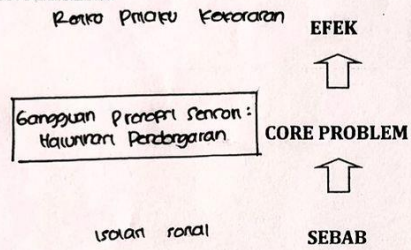 Resiko Prilaku Kekerasan
EFEK
Gangguan Presepsi Sensori :
Halusinasi Pendengaran
CORE PROBLEM
Isolasi sosial
SEBAB